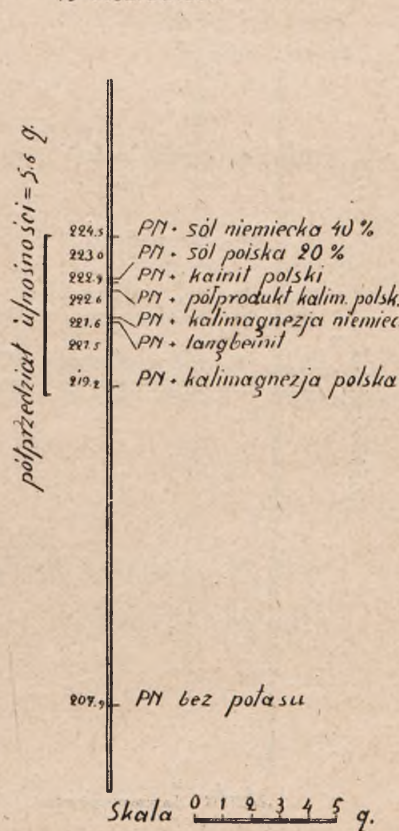 półprzedział ufności = 5.6 g.
224.5 PN + sól niemiecka 40 %
223.0 PN + sól polska 20 %
222.9 PN + kainit polski
222.6 PN + półprodukt kalim. polsk.
221.6 PN + kalimagnezja niemiec
221.5 PN + langbeinit
219.2 PN + kalimagnezja polska
207.9 PN bez potasu
Skala 0 1 2 3 4 5 g.